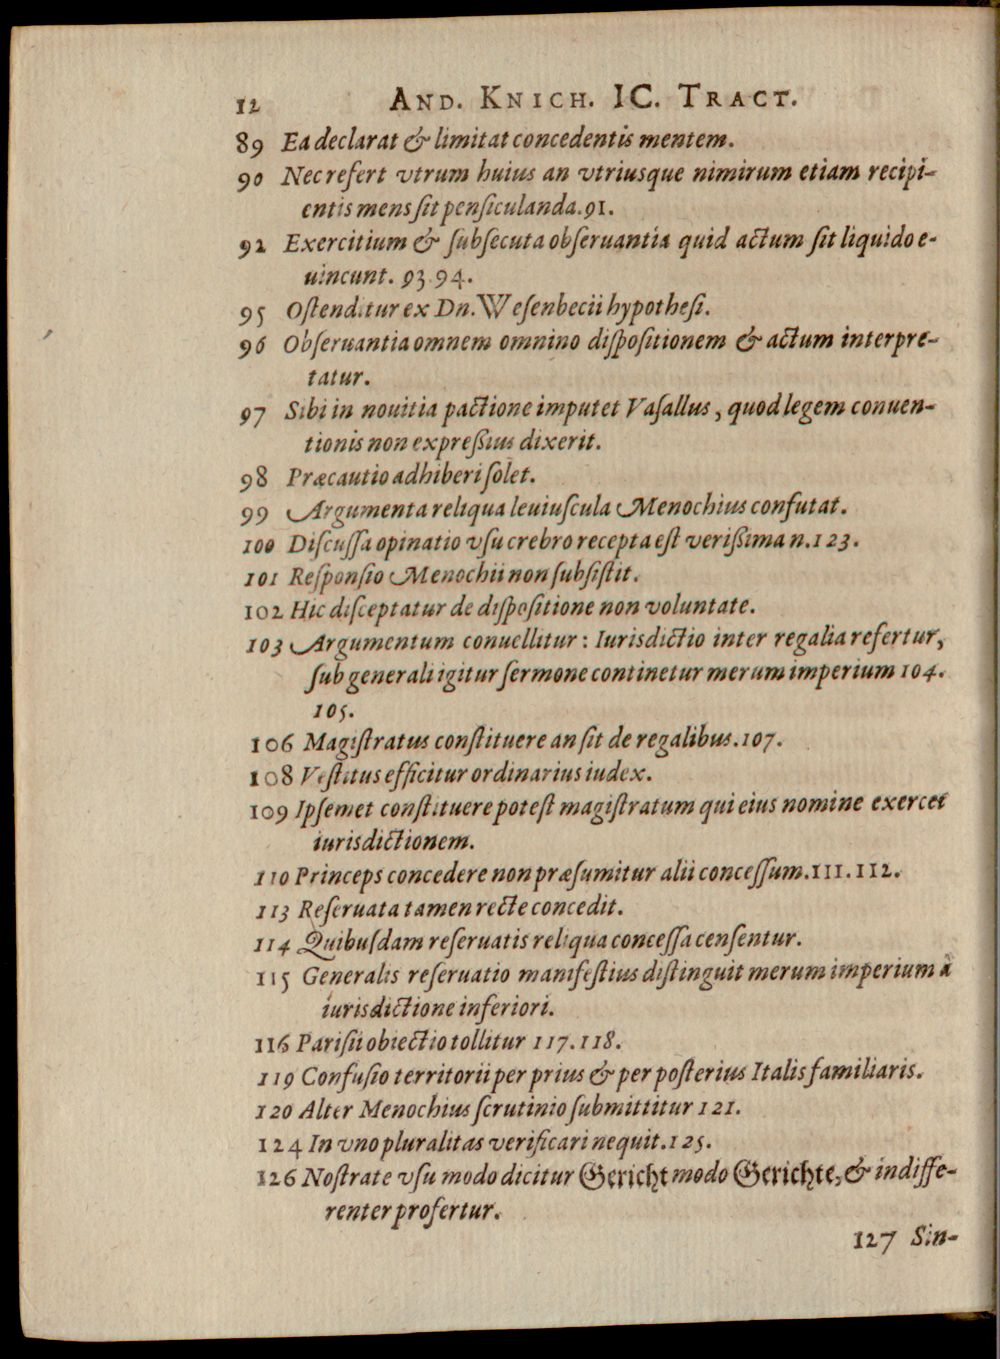 12 AND. KNICH. IC. TRACT.
89 Ea declarat & limitat concedentis mentem.
90 Nec refert vtrum huius an vtriusque nimirum etiam recipi-
entis mens ſit penſiculanda. 91.
92 Exercitium & ſubſecuta obſeruantia quid actum ſit liquido e-
uincunt. 93. 94.
95 Oſtenditur ex Dn. Weſenbecii hypotheſi.
96 Obſeruantia omnem omnino diſpoſitionem & actum interpre-
tatur.
97 Sibi in nouitia pactione imputet Vaſallus, quod legem conuen-
tionis non expreßius dixerit.
98 Præcautio adhiberi ſolet.
99 Argumenta reliqua leuiuſcula Menochius confutat.
100 Diſcuſſa opinatio vſu crebro recepta eſt verißima n. 123.
101 Reſponſio Menochii non ſubſiſtit.
102 Hic diſceptatur de diſpoſitione non voluntate.
103 Argumentum conuellitur: Iurisdictio inter regalia refertur,
ſub generali igitur ſermone continetur merum imperium 104.
105.
106 Magiſtratus conſtituere an ſit de regalibus. 107.
108 Veſtitus efficitur ordinarius iudex.
109 Ipſemet conſtituere poteſt magiſtratum qui eius nomine exercet
iurisdictionem.
110 Princeps concedere non præſumitur alii conceſſum. 111. 112.
113 Reſeruata tamen recte concedit.
114 Quibuſdam reſeruatis reliqua conceſſa cenſentur.
115 Generalis reſeruatio manifeſtius diſtinguit merum imperium à
iurisdictione inferiori.
116 Pariſii obiectio tollitur 117. 118.
119 Confuſio territorii per prius & per poſterius Italis familiaris.
120 Alter Menochius ſcrutinio ſubmittitur 121.
124 In vno pluralitas verificari nequit. 125.
126 Noſtrate vſu modo dicitur Gericht modo Gerichte, & indiffe-
renter profertur.
127 Sin-